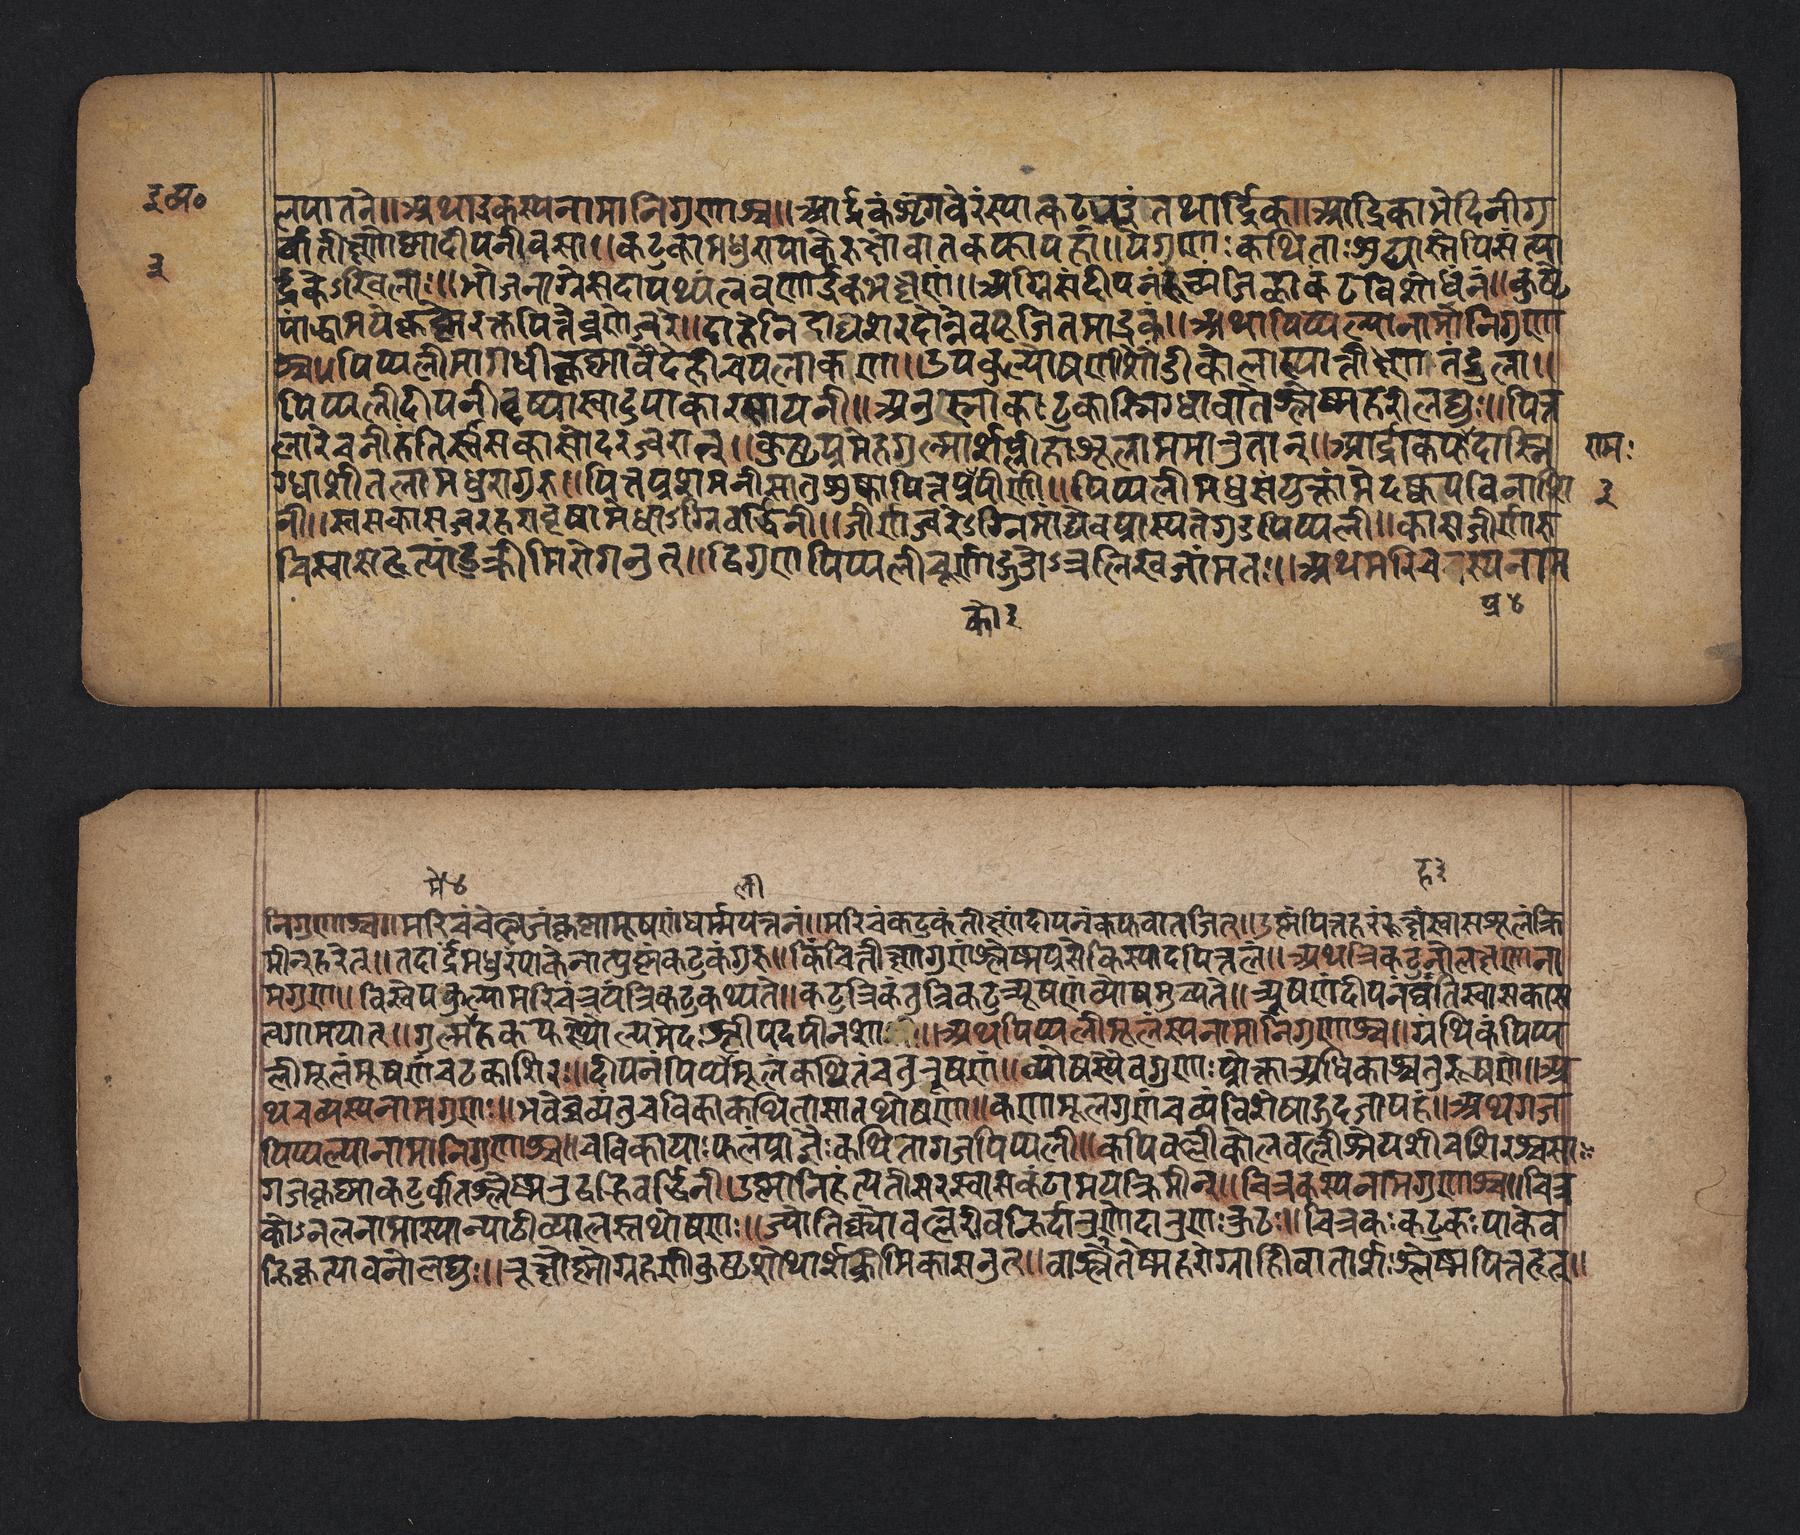 द्रव्य॰
३
लपातने॥ अथार्द्रकस्यनामानिगुणाश्च॥ आर्द्रकंशृंगवेरंस्यात्कटुभद्रंतथार्द्रिका॥ आर्द्रिकाभेदिनीगु
र्वीतीक्ष्णोष्णादीपनीचसा॥ कटुकामधुरापाकेरुक्षावातकफापहा॥ येगुणाःकथिताःशुंठ्यास्तेपिसंत्या
र्द्रकेऽखिलाः॥ भोजनाग्रेसदापथ्यंलवणार्द्रकभक्षणं॥ अग्निसंदीपनंरुच्यंजिह्वाकंठविशोधनं॥ कुष्ठे
पांड्वामयेकृच्छ्रेरक्तपित्तेव्रणेज्वरे॥ दाहेनिदाघशरदोर्नैवपूजितमार्द्रकं॥ अथपिप्पल्यानामानिगुणा
श्च॥ पिप्पलीमागधीकृष्णावैदेहीचपलाकणा॥ उपकुल्योषणाशौंडीकोलास्यात्तीक्ष्णतंडुला॥
पिप्पलीदीपनीवृष्यास्वादुपाकारसायनी॥ अनुष्णाकटुकास्निग्धावातश्लेष्महरीलघुः॥ पित्त
लारेचनीहंतिश्वासकासोदरज्वरान्॥ कुष्ठप्रमेहगुल्मार्शप्लीहाशूलाममारुतान्॥ आर्द्राकफदास्नि
राम:
ग्धाशीतलामधुरागुरु॥ पित्तप्रशमनीसातुशुष्कापित्तप्रकोपीणी॥ पिप्पलीमधुसंयुक्तामेदकफविनाशि
३
नी॥ स्वासकासज्वरहरावृष्यामेधाऽग्निवर्द्धिनी॥ जीर्णज्वरेऽग्निमांद्येचप्रास्यतेगुडपिप्पली॥ कासजीर्णारु
चिस्वासहृत्पांडुक्रीमिरोगनुत्॥ द्विगुणपिप्पलीचूर्णाद्गुडोऽत्रभिषजांमतः॥ अथमरिचस्यनाम
को३
प्र४
मे४
ली
ह३
निगुणाश्च॥ मरिचंवेल्लजंकृष्णमूषणंधर्मपत्तनं॥ मरिचंकटुकंतीक्ष्णंदीपनंकफवातजित्॥ उष्णंपित्तहरंरूक्षंस्वासशूलंक्रि
मीन्हरेत्॥ तदार्द्रंमधुरंपाकेनात्युष्णंकटुकंगुरु॥ किंचित्तीक्ष्णगुणंश्लेष्मप्रसेकिस्यादपित्तलं॥ अथत्रिकटुनोलक्षणना
मगुणा॥ विस्वोपकुल्यामरिचंत्रयंत्रिकटुकथ्यते॥ कटुत्रिकंतुत्रिकटुत्र्यूषणंव्योषमुच्यते॥ त्र्यूषणंदीपनंहंतिस्वासकास
त्वगामयात्॥ गुल्महकफस्थौल्यमेदश्लीपदपीनशान्॥ अथपिप्पलीमूलस्यनामानिगुणाश्च॥ ग्रंथिकंपिप्प
लीमूलंमूषणंचटकाशिरः॥ दीपनंपिप्पलीमूलंकथितंचतुरूषणं॥ व्योषस्यैवगुणाःप्रोक्ताअधिकाश्चतुरूषणे॥ अ
थचव्यस्यनामगुणाः॥ भवेच्चव्यंतुचविकाकथितासातथोषणा॥ कणामूलगुणंचव्यंविशेषाद्गुदजापहं॥ अथगज
पिप्पल्यानामानिगुणाश्च॥ चविकायाःफलंप्राज्ञैःकथितागजपिप्पली॥ कपिवल्लीकोलवल्लीश्रेयशीवशिरश्चसाः
गजकृष्णाकटुर्वातश्लेष्मनुद्वह्निवर्द्धिनी॥ उष्णानिहंत्यतीसारस्वासकंठामयक्रिमीन्॥ चित्रकस्यनामगुणाश्च॥ चित्र
कोऽनलनामास्यात्पाठीव्यालस्तथोषणः॥ ज्योतिष्कोवल्लरीवह्निर्दारुणोदारुणःकुटः॥ चित्रकःकटुकःपाकेव
ह्निकृत्पाचनोलघुः॥ रूक्षोष्णोग्रहणीकुष्ठशोथार्शःक्रिमिकासनुत्॥ वातश्लेष्महरोग्राहीवातार्शःश्लेष्मपित्तहृत्॥